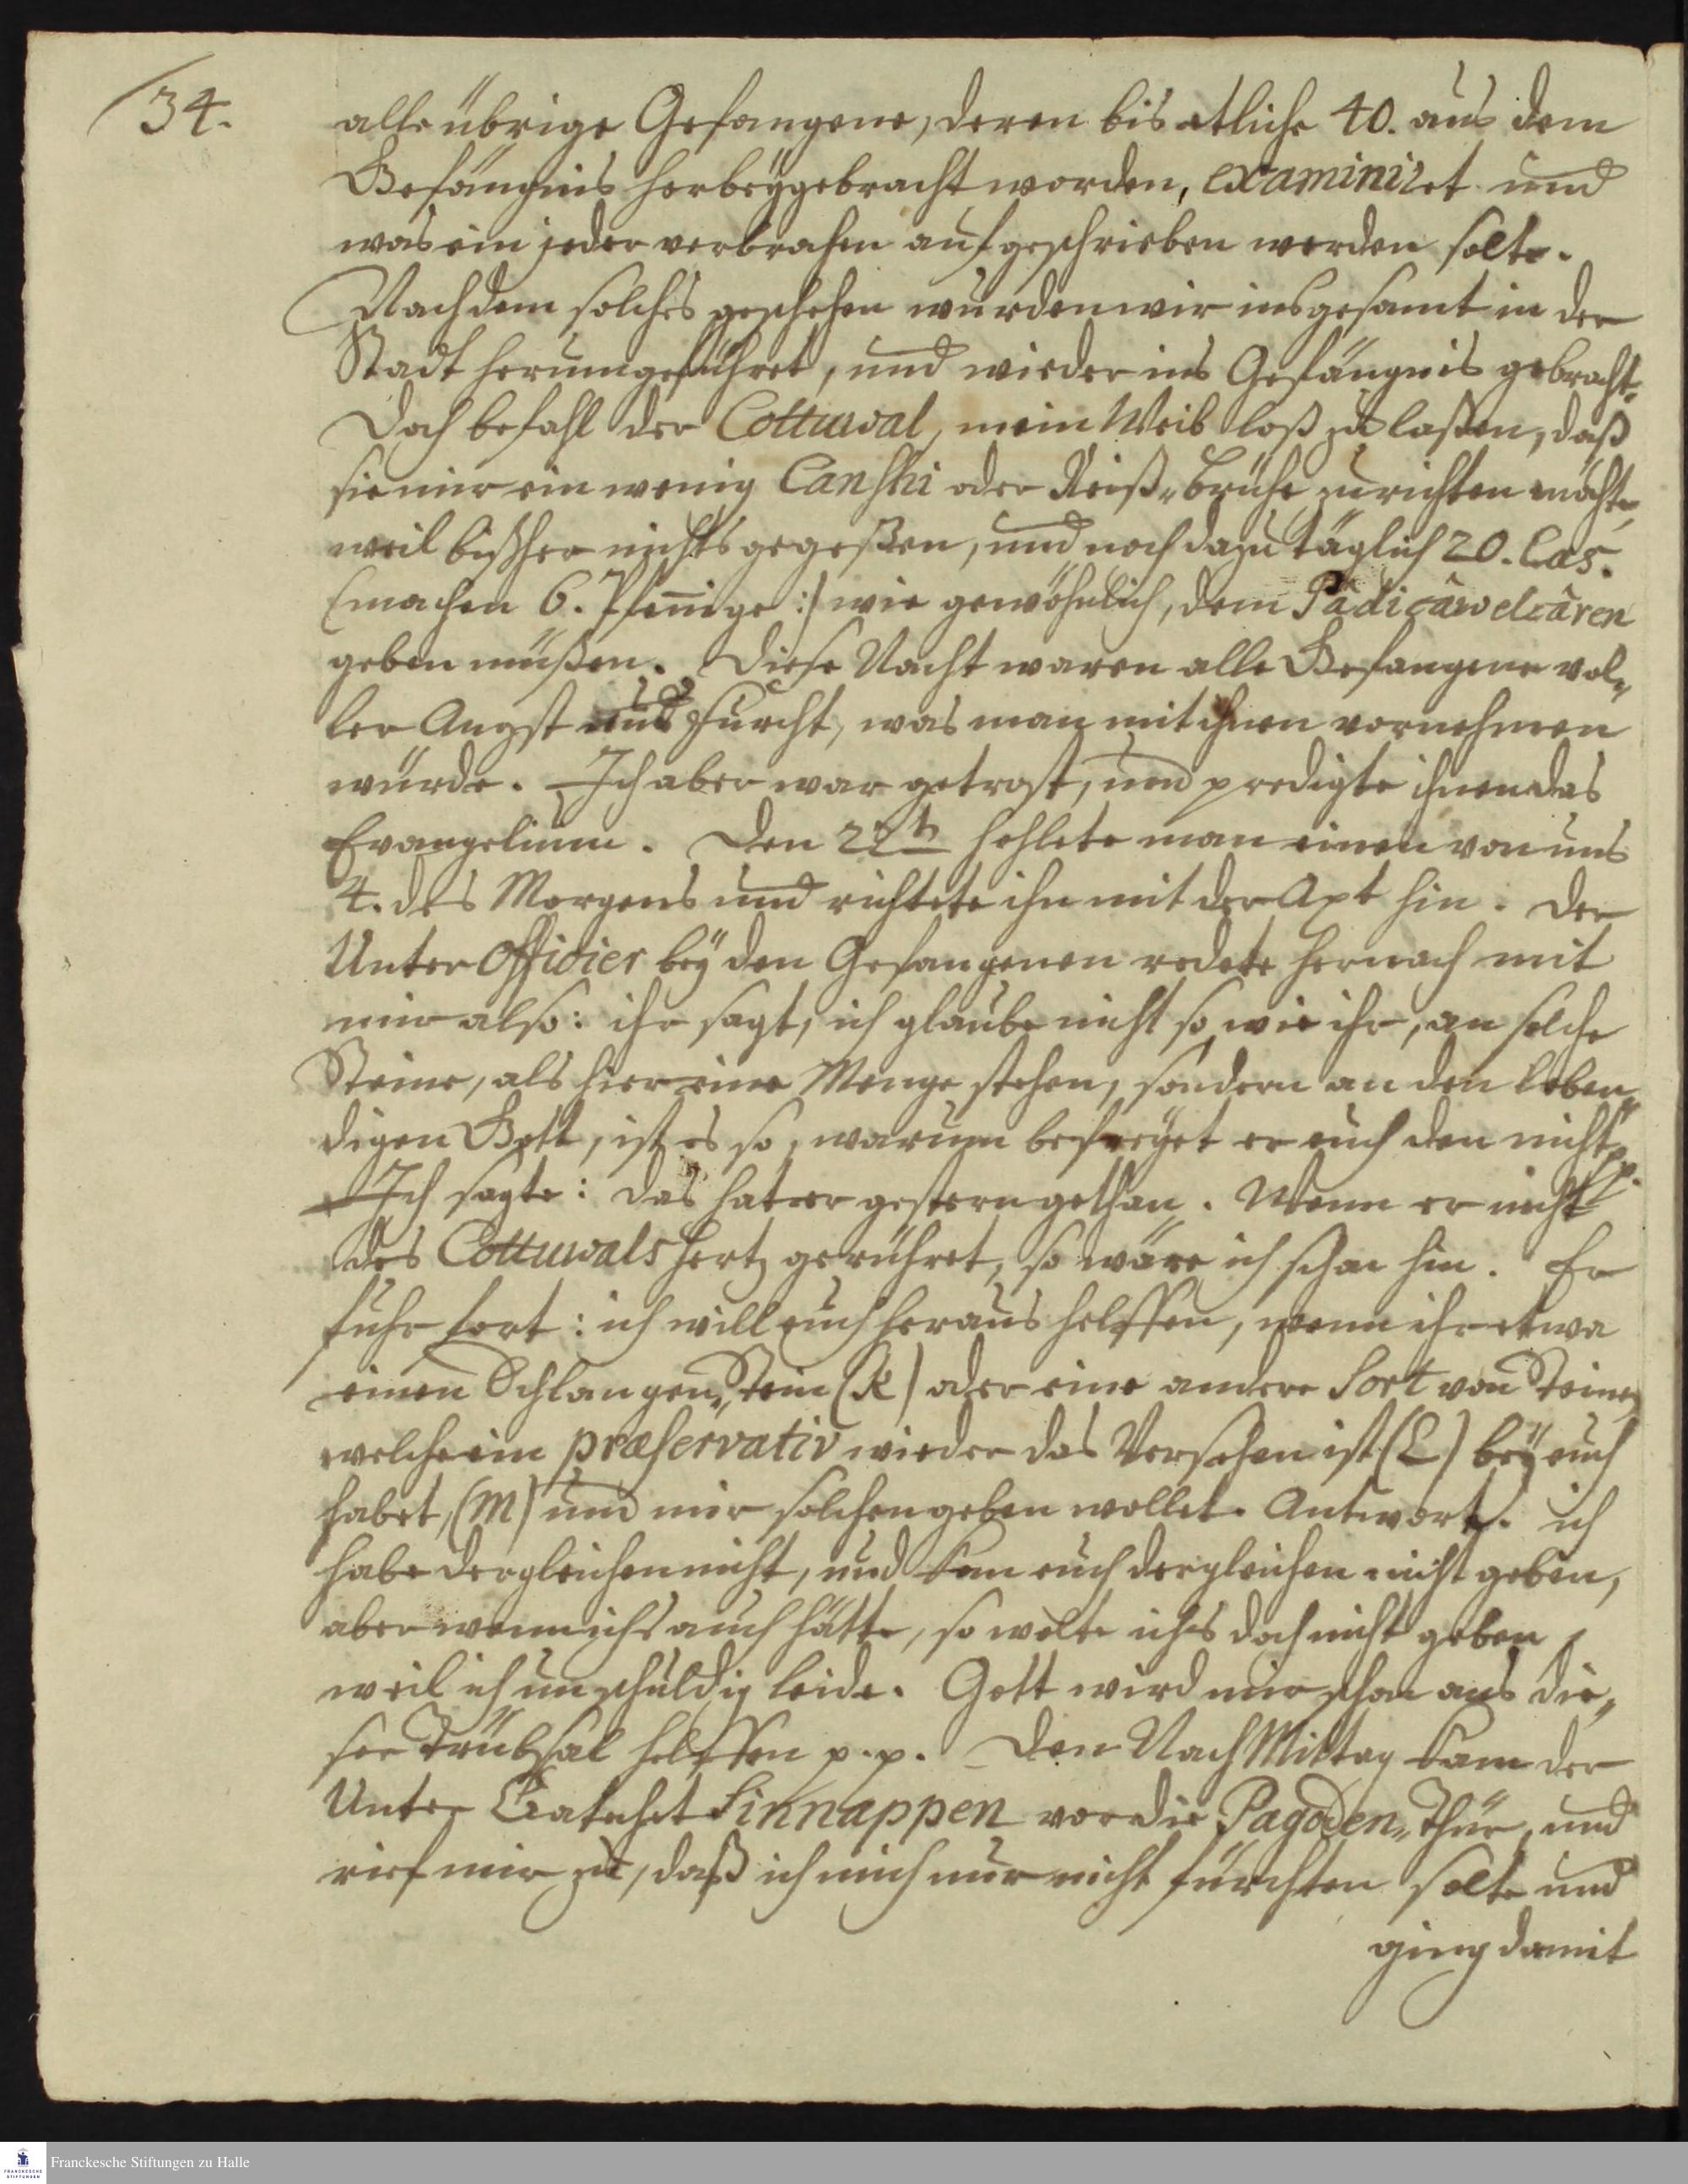 34.
alle übrige Gefangene, deren bis etliche 40. aus dem
Gefängnis herbeÿgebracht worden, examiniret und
was ein jeder verbrahen aufgeschrieben werden solte.
Nachdem solches geschehen wurden wir insgesamt in der
Stadt herumgeführet, und wieder ins Gefängnis gebracht.
Doch befahl der Cottuwal, mein Weib loß zu laßen, daß
sie mir ein wenig Canshi oder Reiß„brühe zurichten möchte,
weil bißher nichts gegeßen, und noch dazu täglich 20. Cas.
(machen 6. Pfennige :) wie gewöhnlich, dem Pâdicâwelcâren
geben müßen. Diese Nacht waren alle Gefangene vol„
ler Angst und Furcht, was man mit ihnen vornehmen
würde. Ich aber war getrost, und predigte ihnen das
Evangelium. Den 22t hohlete man einen von uns
4. des Morgens und richtete ihn mit der Axt hin. Der
Unter Officier beÿ den Gefangenen redete hernach mit
mir also: ihr sagt, ich glaube nicht so, wie ihr, an solche
Steine, als hier eine Menge stehen, sondern an den leben„
digen Gott, ist es so, warum befreÿet er euch den nicht pp.
Ich sagte: das hat er gestern gethan. Wenn er nicht
des Cottuwals Hertz gerühret, so wäre ich schon hin. Er
fuhr fort: ich will euch heraus helffen, wenn ihr etwa
einen Schlangen„Stein (K) oder eine andere Sort von Steine,
welche ein præservativ wieder das Versehen ist (L) beÿ euch
habet, (M) und mir solchen geben wollet. Antwort. ich
habe dergleichen nicht, und kan euch dergleichen nicht geben,
aber wenn ichs auch hätte, so wolte ichs doch nicht geben,
weil ich unschuldig leide. Gott wird mir schon aus die„
ser Trübsal helffen p.p. Den Nach Mittag kam der
Unter Catechet Sinnappen vor die Pagoden„Thür, und
rief mir zu, daß ich mich nur nicht fürchten solte und
ging damit
Franckesche Stiftungen zu Halle